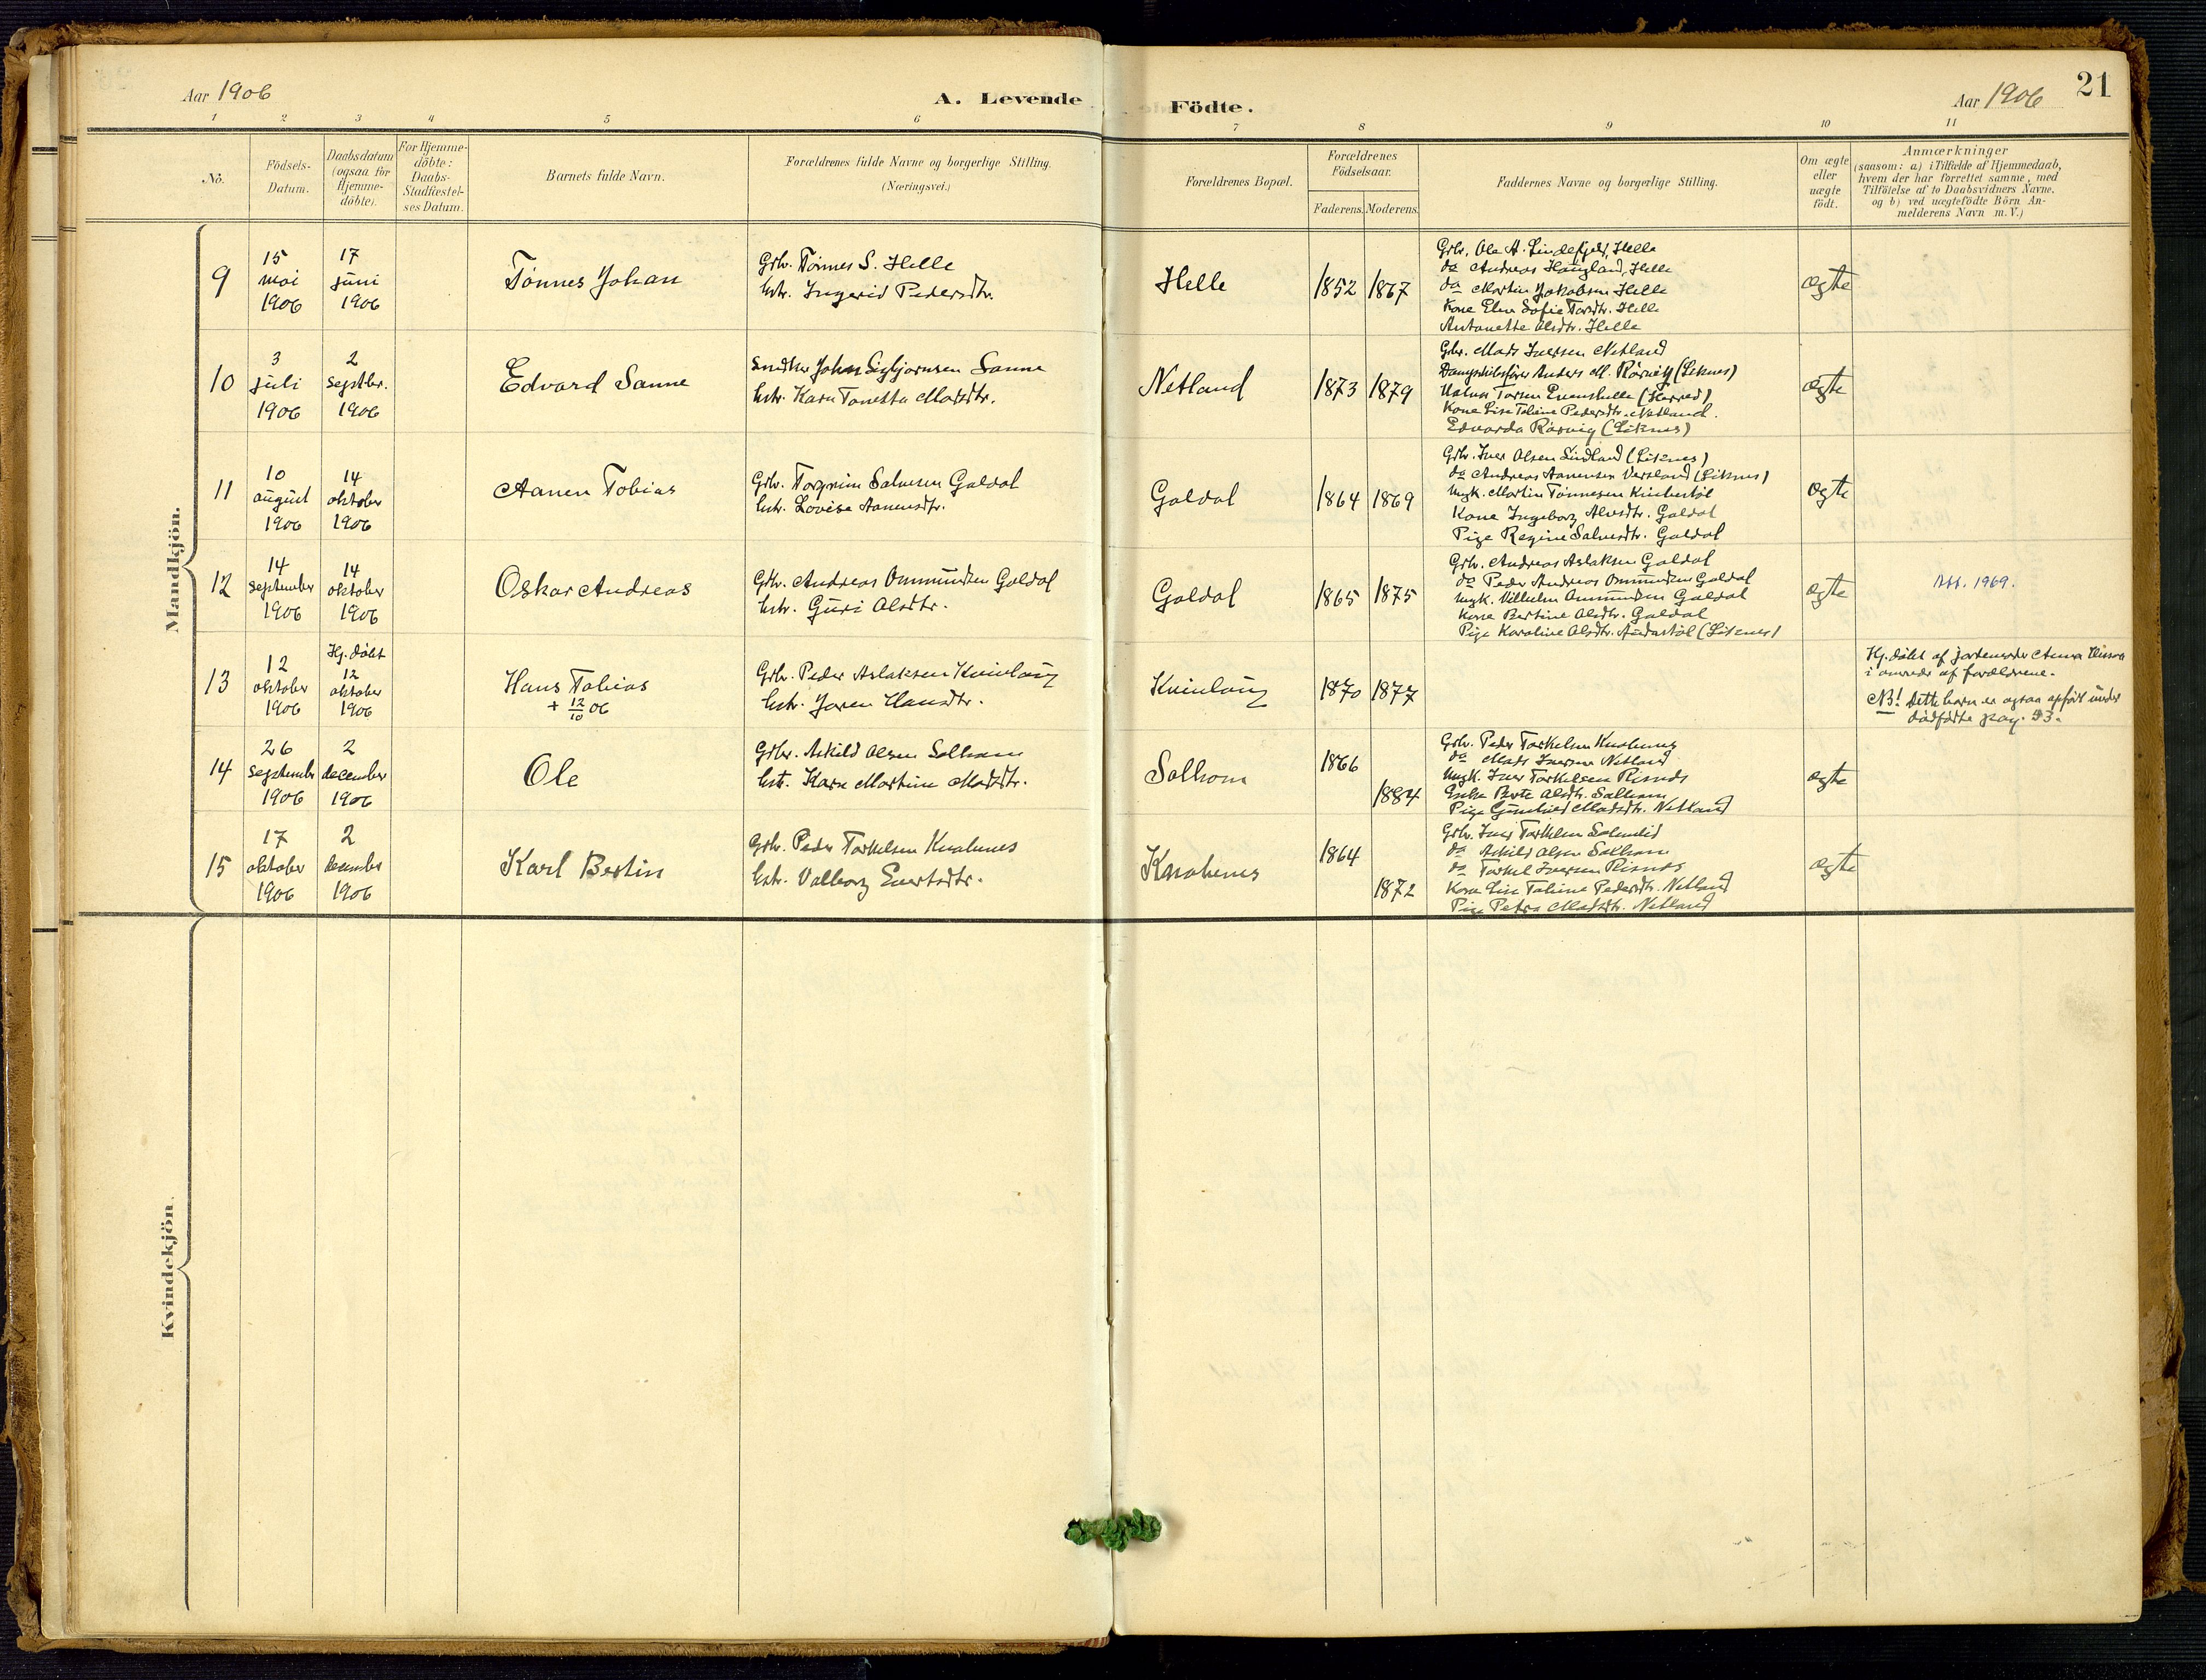 Aar 1906
A. Levende Födte.
Aar 1906
21
1 2 3 4 5 6 7 8 9 10 11
No.
Födsels-
Datum.
Daabsdatum
(ogsaa for
Hjemme-
döbte).
For Hjemme-
döbte:
Daabs-
Stadfæstel-
ses Datum.
Barnets fulde Navn.
Forældrenes fulde Navne og borgerlige Stilling.
(Næringsvei.)
Forældrenes Bopæl.
Forældrenes
Födselsaar.
Faderens. Moderens.
Faddernes Navne og borgerlige Stilling.
Om ægte
eller
uægte
födt.
Anmærkninger
(saasom: a) i Tilfælde af Hjemmedaab,
hvem der har forrettet samme, med
Tilföielse af to Daabsvidners Navne,
og b) ved uægtefödte Börn An-
melderens Navn m.V.)
Mandkjön.
9
15
mai
1906
17
juni
1906
Tönnes Johan
Grbr. Tönnes S. Helle
hstr. Ingerid Pedersdtr.
Helle
1852
1867
Grbr. Ole A. Lindefjeld, Helle
do Andreas Haugland, Helle
do Martin Jakobsen Helle
Kone Elen Sofie Torsdtr. Helle
Antonette Olsdtr. Helle
ægte
10
3
juli
1906
2
septbr.
1906
Edvard Sanne
Snedker Johan Sigbjörnsen Sanne
hstr. Karen Tonetta Madsdtr.
Netland
1873
1879
Grbr. Mads Iversen Netland
Dampskibsförer Anders M. Rörvig (Liknes)
Torsen Evenshelle (Herred)
Kone Lise Tobine Pedersdtr. Netland.
Edvarda Rörvig (Liknes)
ægte
11
10
august
1906
14
oktober
1906
Aanen Tobias
Grbr. Torgrim Salvesen Galdal
hstr. Lovise Aanensdtr.
Galdal
1864
1869
Grbr. Iver Olsen Lindland (Liknes)
do Andreas Aanensen Versland (Liknes)
Ungk. Martin Tönnesen
Kone Ingeborg Alvsdtr. Galdal
Pige Regine Salvesdtr. Galdal
ægte
12
14
september
1906
14
oktober
1906
Oskar Andreas
Grbr. Andreas Ommundsen Galdal
hstr. Guri Olsdtr.
Galdal
1865
1875
Grbr. Andreas Aslaksen Galdal
do Peder Andreas Ommundsen Galdal
Ungk. Vilhelm Ommundsen Galdal
Kone Bertine Olsdtr. Galdal
Pige Karoline Olsdtr. (Liknes)
ægte
Att. 1969.
13
12
oktober
1906
Hj. döbt
12
oktober
1906
Hans Tobias
+ 12/10 06
Grbr. Peder Aslaksen Kvinlaug
hstr. Joren Hansdtr.
Kvinlaug
1870
1877
Hj. döbt af
i nærvær af forældrene.
NB! Dette barn er ogsaa opfört under
dödfödte pag. 93.
14
26
september
1906
2
december
1906
Ole
Grbr. Askild Olsen Solhom
hstr. Karen Martine Madsdtr.
Solhom
1866
1884
Grbr. Peder Torkelsen Knabenes
do Mads Iversen Netland
Ungk. Iver Torkelsen Risnes
Enke Berte Olsdtr. Solhom
Pige Gunhild Madsdtr. Netland
ægte
15
17
oktober
1906
2
december
1906
Karl Bertin
Grbr. Peder Torkelsen Knabenes
hstr. Valborg Evertsdtr.
Knabenes
1864
1872
Grbr. Iver Torkelsen Salmelid
do Askild Olsen Solhom
do Torkel Iversen Risnes
Kone Lise Tobine Pedersdtr. Netland
Pige Petra Madsdtr. Netland
ægte
Kvindekjön.